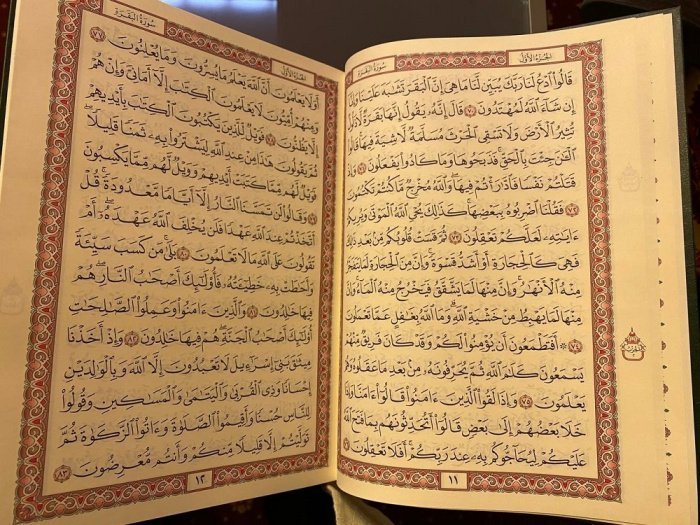 الجُزْءُ الأَوَّلُ
سُورَةُ البَقَرَةِ
قَالُواْ ٱدۡعُ لَنَا رَبَّكَ يُبَيِّن لَّنَا مَا هِيَ إِنَّ ٱلۡبَقَرَ تَشَٰبَهَ عَلَيۡنَا وَإِنَّآ
إِن شَآءَ ٱللَّهُ لَمُهۡتَدُونَ ٧٠ قَالَ إِنَّهُۥ يَقُولُ إِنَّهَا بَقَرَةٞ لَّا ذَلُولٞ
تُثِيرُ ٱلۡأَرۡضَ وَلَا تَسۡقِي ٱلۡحَرۡثَ مُسَلَّمَةٞ لَّا شِيَةَ فِيهَاۚ قَالُواْ
ٱلۡـَٰٔنَ جِئۡتَ بِٱلۡحَقِّۚ فَذَبَحُوهَا وَمَا كَادُواْ يَفۡعَلُونَ ٧١ وَإِذۡ
قَتَلۡتُمۡ نَفۡسٗا فَٱدَّٰرَٰٔتُمۡ فِيهَاۖ وَٱللَّهُ مُخۡرِجٞ مَّا كُنتُمۡ تَكۡتُمُونَ
٧٢ فَقُلۡنَا ٱضۡرِبُوهُ بِبَعۡضِهَاۚ كَذَٰلِكَ يُحۡيِ ٱللَّهُ ٱلۡمَوۡتَىٰ وَيُرِيكُمۡ
ءَايَٰتِهِۦ لَعَلَّكُمۡ تَعۡقِلُونَ ٧٣ ثُمَّ قَسَتۡ قُلُوبُكُم مِّنۢ بَعۡدِ ذَٰلِكَ
فَهِيَ كَٱلۡحِجَارَةِ أَوۡ أَشَدُّ قَسۡوَةٗۚ وَإِنَّ مِنَ ٱلۡحِجَارَةِ لَمَا يَتَفَجَّرُ
مِنۡهُ ٱلۡأَنۡهَٰرُۚ وَإِنَّ مِنۡهَا لَمَا يَشَّقَّقُ فَيَخۡرُجُ مِنۡهُ ٱلۡمَآءُۚ وَإِنَّ
مِنۡهَا لَمَا يَهۡبِطُ مِنۡ خَشۡيَةِ ٱللَّهِۗ وَمَا ٱللَّهُ بِغَٰفِلٍ عَمَّا تَعۡمَلُونَ
٧٤ ۞ أَفَتَطۡمَعُونَ أَن يُؤۡمِنُواْ لَكُمۡ وَقَدۡ كَانَ فَرِيقٞ مِّنۡهُمۡ
يَسۡمَعُونَ كَلَٰمَ ٱللَّهِ ثُمَّ يُحَرِّفُونَهُۥ مِنۢ بَعۡدِ مَا عَقَلُوهُ وَهُمۡ
يَعۡلَمُونَ ٧٥ وَإِذَا لَقُواْ ٱلَّذِينَ ءَامَنُواْ قَالُوٓاْ ءَامَنَّا وَإِذَا
خَلَا بَعۡضُهُمۡ إِلَىٰ بَعۡضٖ قَالُوٓاْ أَتُحَدِّثُونَهُم بِمَا فَتَحَ ٱللَّهُ
عَلَيۡكُمۡ لِيُحَآجُّوكُم بِهِۦ عِندَ رَبِّكُمۡۚ أَفَلَا تَعۡقِلُونَ ٧٦
١١
الجُزْءُ الأَوَّلُ
سُورَةُ البَقَرَةِ
أَوَلَا يَعۡلَمُونَ أَنَّ ٱللَّهَ يَعۡلَمُ مَا يُسِرُّونَ وَمَا يُعۡلِنُونَ ٧٧
وَمِنۡهُمۡ أُمِّيُّونَ لَا يَعۡلَمُونَ ٱلۡكِتَٰبَ إِلَّآ أَمَانِيَّ وَإِنۡ هُمۡ
إِلَّا يَظُنُّونَ ٧٨ فَوَيۡلٞ لِّلَّذِينَ يَكۡتُبُونَ ٱلۡكِتَٰبَ بِأَيۡدِيهِمۡ
ثُمَّ يَقُولُونَ هَٰذَا مِنۡ عِندِ ٱللَّهِ لِيَشۡتَرُواْ بِهِۦ ثَمَنٗا قَلِيلٗاۖ
فَوَيۡلٞ لَّهُم مِّمَّا كَتَبَتۡ أَيۡدِيهِمۡ وَوَيۡلٞ لَّهُم مِّمَّا يَكۡسِبُونَ
٧٩ وَقَالُواْ لَن تَمَسَّنَا ٱلنَّارُ إِلَّآ أَيَّامٗا مَّعۡدُودَةٗۚ قُلۡ
أَتَّخَذۡتُمۡ عِندَ ٱللَّهِ عَهۡدٗا فَلَن يُخۡلِفَ ٱللَّهُ عَهۡدَهُۥٓۖ أَمۡ
تَقُولُونَ عَلَى ٱللَّهِ مَا لَا تَعۡلَمُونَ ٨٠ بَلَىٰۚ مَن كَسَبَ سَيِّئَةٗ
وَأَحَٰطَتۡ بِهِۦ خَطِيٓـَٔتُهُۥ فَأُوْلَٰٓئِكَ أَصۡحَٰبُ ٱلنَّارِۖ هُمۡ
فِيهَا خَٰلِدُونَ ٨١ وَٱلَّذِينَ ءَامَنُواْ وَعَمِلُواْ ٱلصَّٰلِحَٰتِ
أُوْلَٰٓئِكَ أَصۡحَٰبُ ٱلۡجَنَّةِۖ هُمۡ فِيهَا خَٰلِدُونَ ٨٢ وَإِذۡ أَخَذۡنَا
مِيثَٰقَ بَنِيٓ إِسۡرَٰٓءِيلَ لَا تَعۡبُدُونَ إِلَّا ٱللَّهَ وَبِٱلۡوَٰلِدَيۡنِ
إِحۡسَانٗا وَذِي ٱلۡقُرۡبَىٰ وَٱلۡيَتَٰمَىٰ وَٱلۡمَسَٰكِينِ وَقُولُواْ
لِلنَّاسِ حُسۡنٗا وَأَقِيمُواْ ٱلصَّلَوٰةَ وَءَاتُواْ ٱلزَّكَوٰةَ ثُمَّ
تَوَلَّيۡتُمۡ إِلَّا قَلِيلٗا مِّنكُمۡ وَأَنتُم مُّعۡرِضُونَ ٨٣
١٢